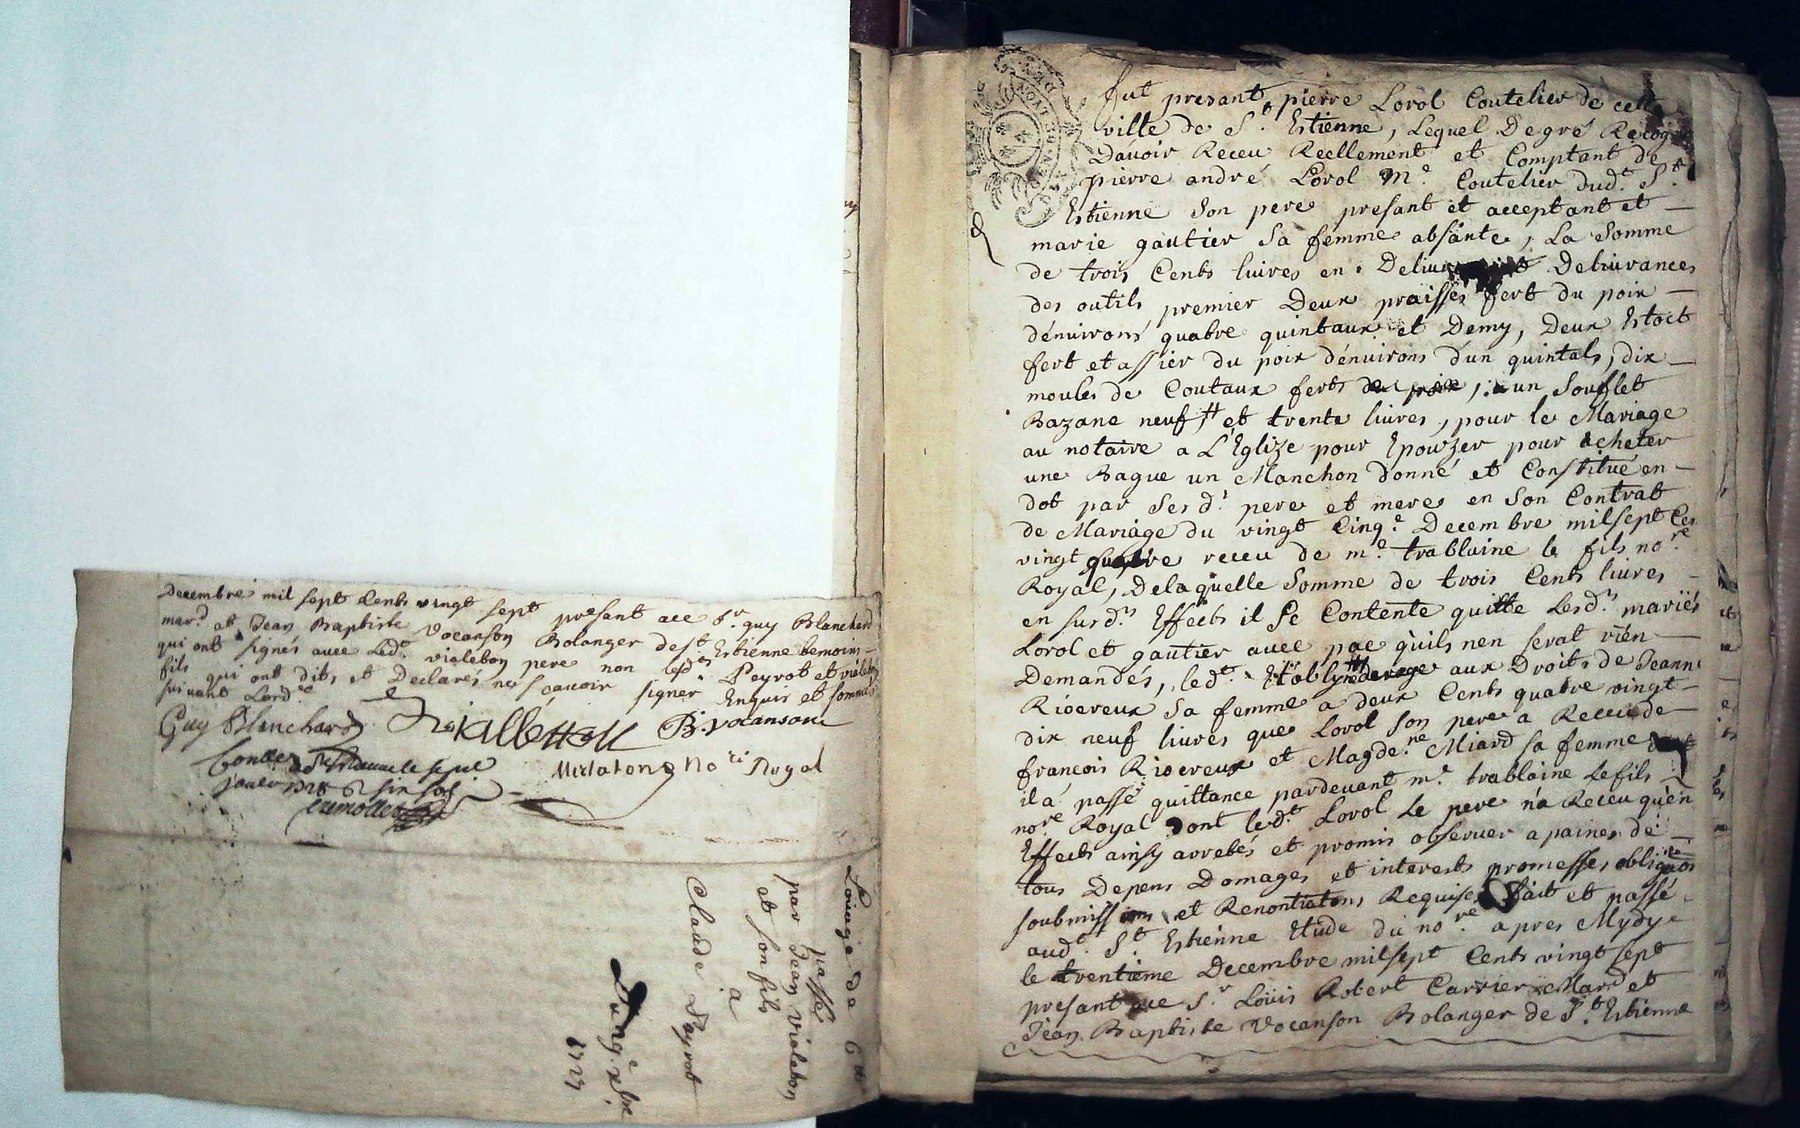 Decembre mil sept Cents vingt sept presant ace Sr. guy Blanchard
mard. et Jean Baptiste vocanson Bolanger de st Estienne temoins
qui ont signés avec led. violeton pere non lesds Peyrot et violeton
fils qui ont dits et Declarés ne scavoir signer Enquis et sommés
suivant Lordce
Guy Blanchard B. vocanson
No ri Royal
Loüage de 6 tt
passé
par Jean violeton
et son fils
a
Claude Peyrot
1727
fut presant pierre Lorol Coutelier de cette
ville de St. Estienne, Lequel De gré
Davoir Receu Reellement et Comptant de
pierre andré Lorol Me Coutelier dudt. St.
Estienne Son pere presant et acceptant et
marie gautier Sa femme absante, La Somme
de trois Cents livres en Delivrances
des outils premier Deux praisses fert du poix
dénvirons quatre quintaux et Demy, Deux Estoct
fert et assier du poix dénvirons dun quintals, dix
moules de Coutaux ferts, un Soufflet
Bazane neuf tt et trente livres, pour le Mariage
au notaire a L'Eglize pour Epouzer pour acheter
une Bague un Manchon donné et Constitué en
dot par Sesd. pere et mere en Son Contrat
de Mariage du vingt Cinqe. Decembre mil sept Cen
vingt quatre receu de me. trablaine le fils nore
Royal, De laquelle Somme de trois Cents livres
en susds Effects il Se Contente quitte Lesds. mariés
Lorol et gautier avec pac quils nen serat rien
Demandés, ledt. aux Droits de Jeanne
Rioereux Sa femme a deux Cents quatre vingt
dix neuf livres que Lorol Son pere a Receu de
francois Rioereux et Magdene Miard sa femme dont
il a passé quittance pardevant me. trablaine Le fils
nore Royal Dont ledt. Lorol Le pere n'a Receu quén
Effects ainsy arretés et promis observer a paines de
tous Depens Domages et interests promesses obligaons
soubmissions et Renontiatons Requises fait et passé
audt. St. Estienne Etude du nore. apres Mydy
le trentieme Decembre mil sept Cents vingt sept
presant ace Sr Loüis Robert Carrier Mard et
Jean Baptiste vocanson Bolanger de St. Estienne